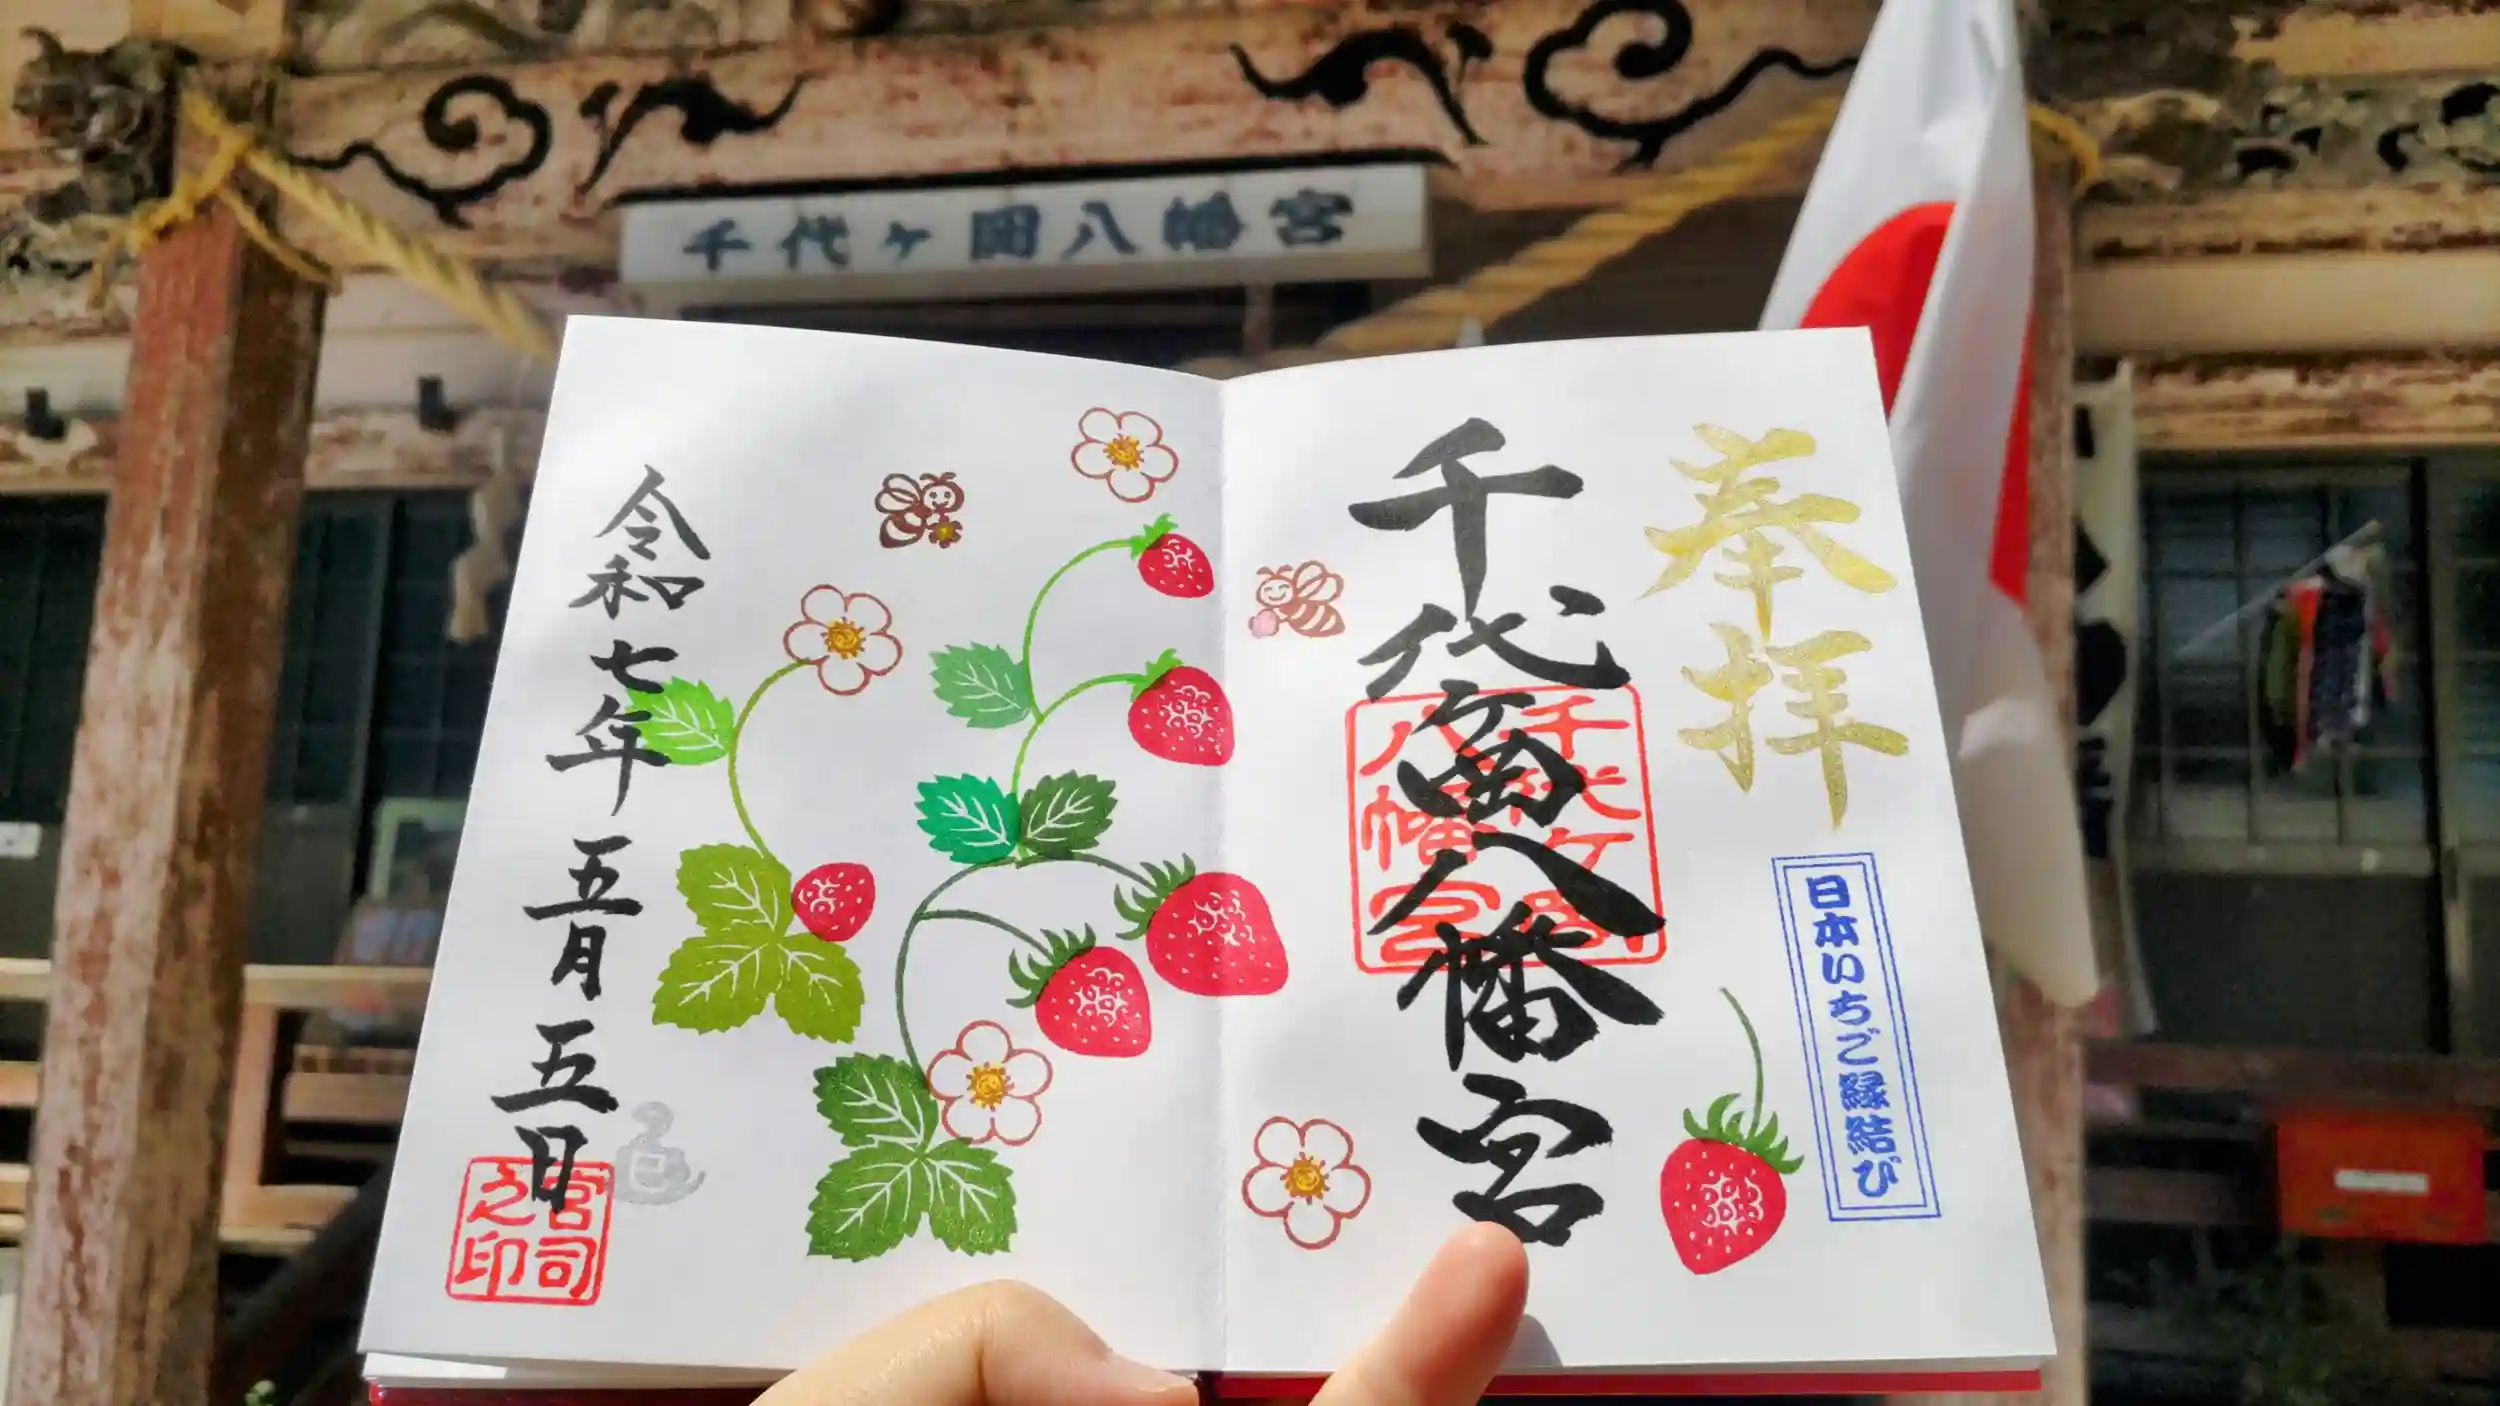 千代ヶ岡八幡宮
奉拝
日本いちご縁結び
千代ヶ岡八幡宮
千代ヶ岡
八幡宮
令和七年五月五日
巳
宮司
之印